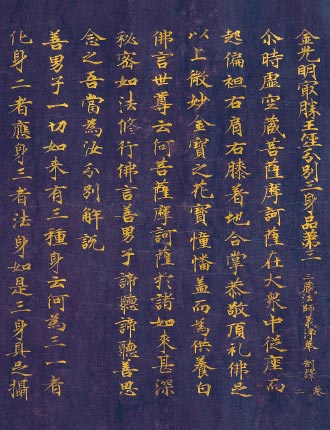 金光明最勝王經分別三身品第三 三藏法師義淨奉 制譯 卷二
尒時虛空藏菩薩摩訶薩在大衆中從座而
起偏袒右肩右膝著地合掌恭敬頂礼佛足
以上微妙金寶之花寶幢幡盖而為供養白
佛言世尊云何菩薩摩訶薩於諸如來甚深
秘密如法修行佛言善男子諦聽諦聽善思
念之吾當為汝分別解說
善男子一切如來有三種身云何為三一者
化身二者應身三者法身如是三身具足攝